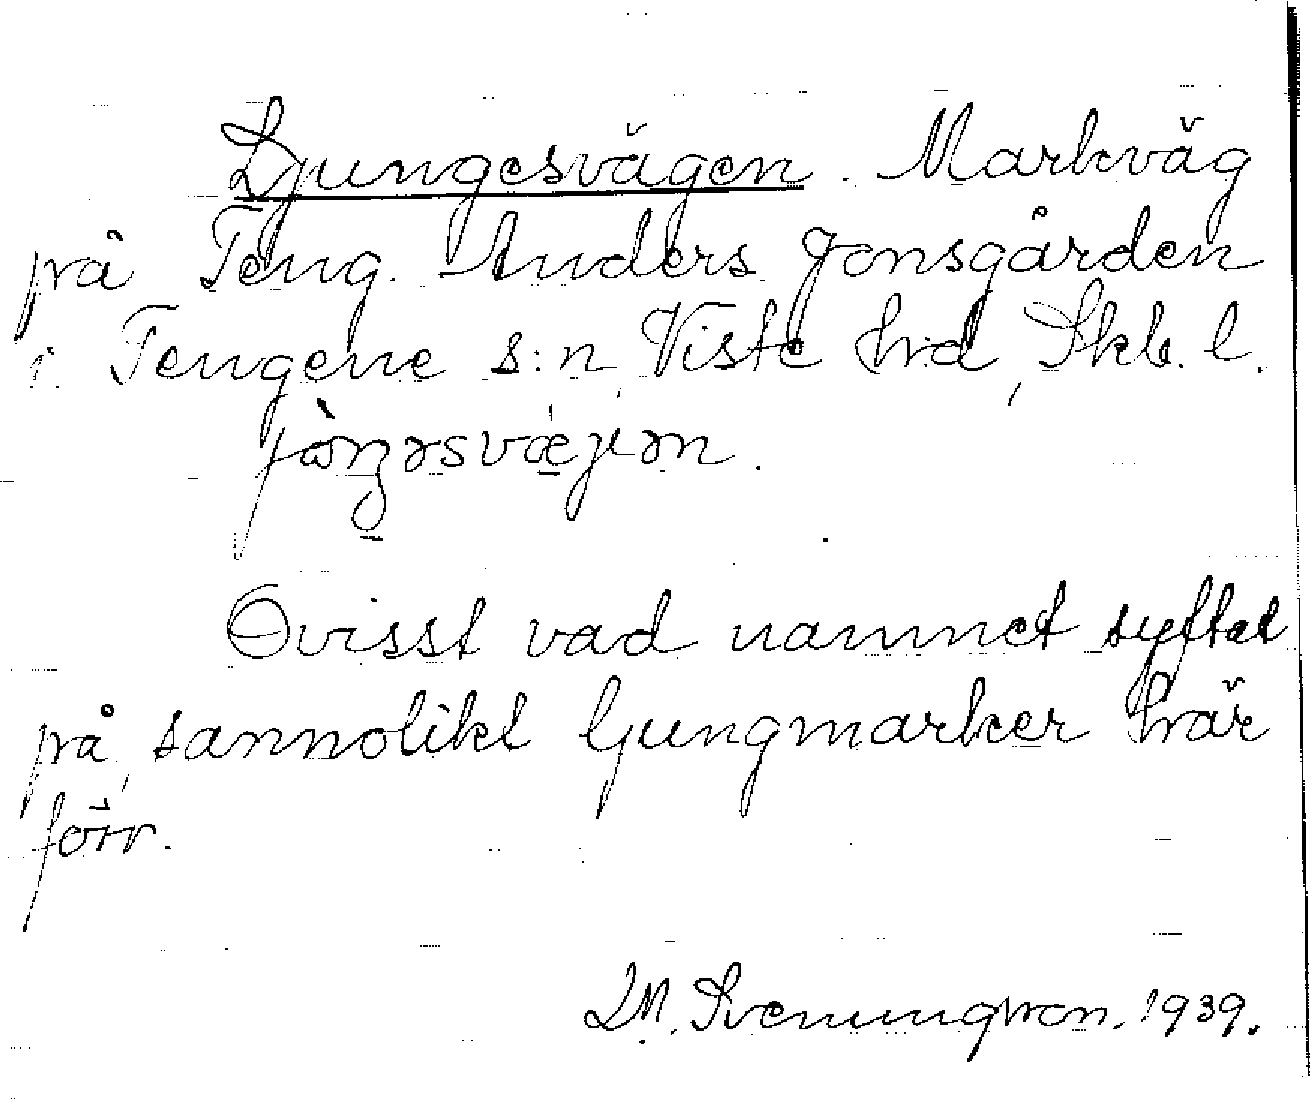 Ljungesvägen. Markväg
på Teng. Anders Jonsgården
i Tengene s:n, Viste hrd, Skb. l.
Ovisst vad namnet syftat
på, sannolikt ljungmarker här
förr.
LM. Svenungsson. 1939.